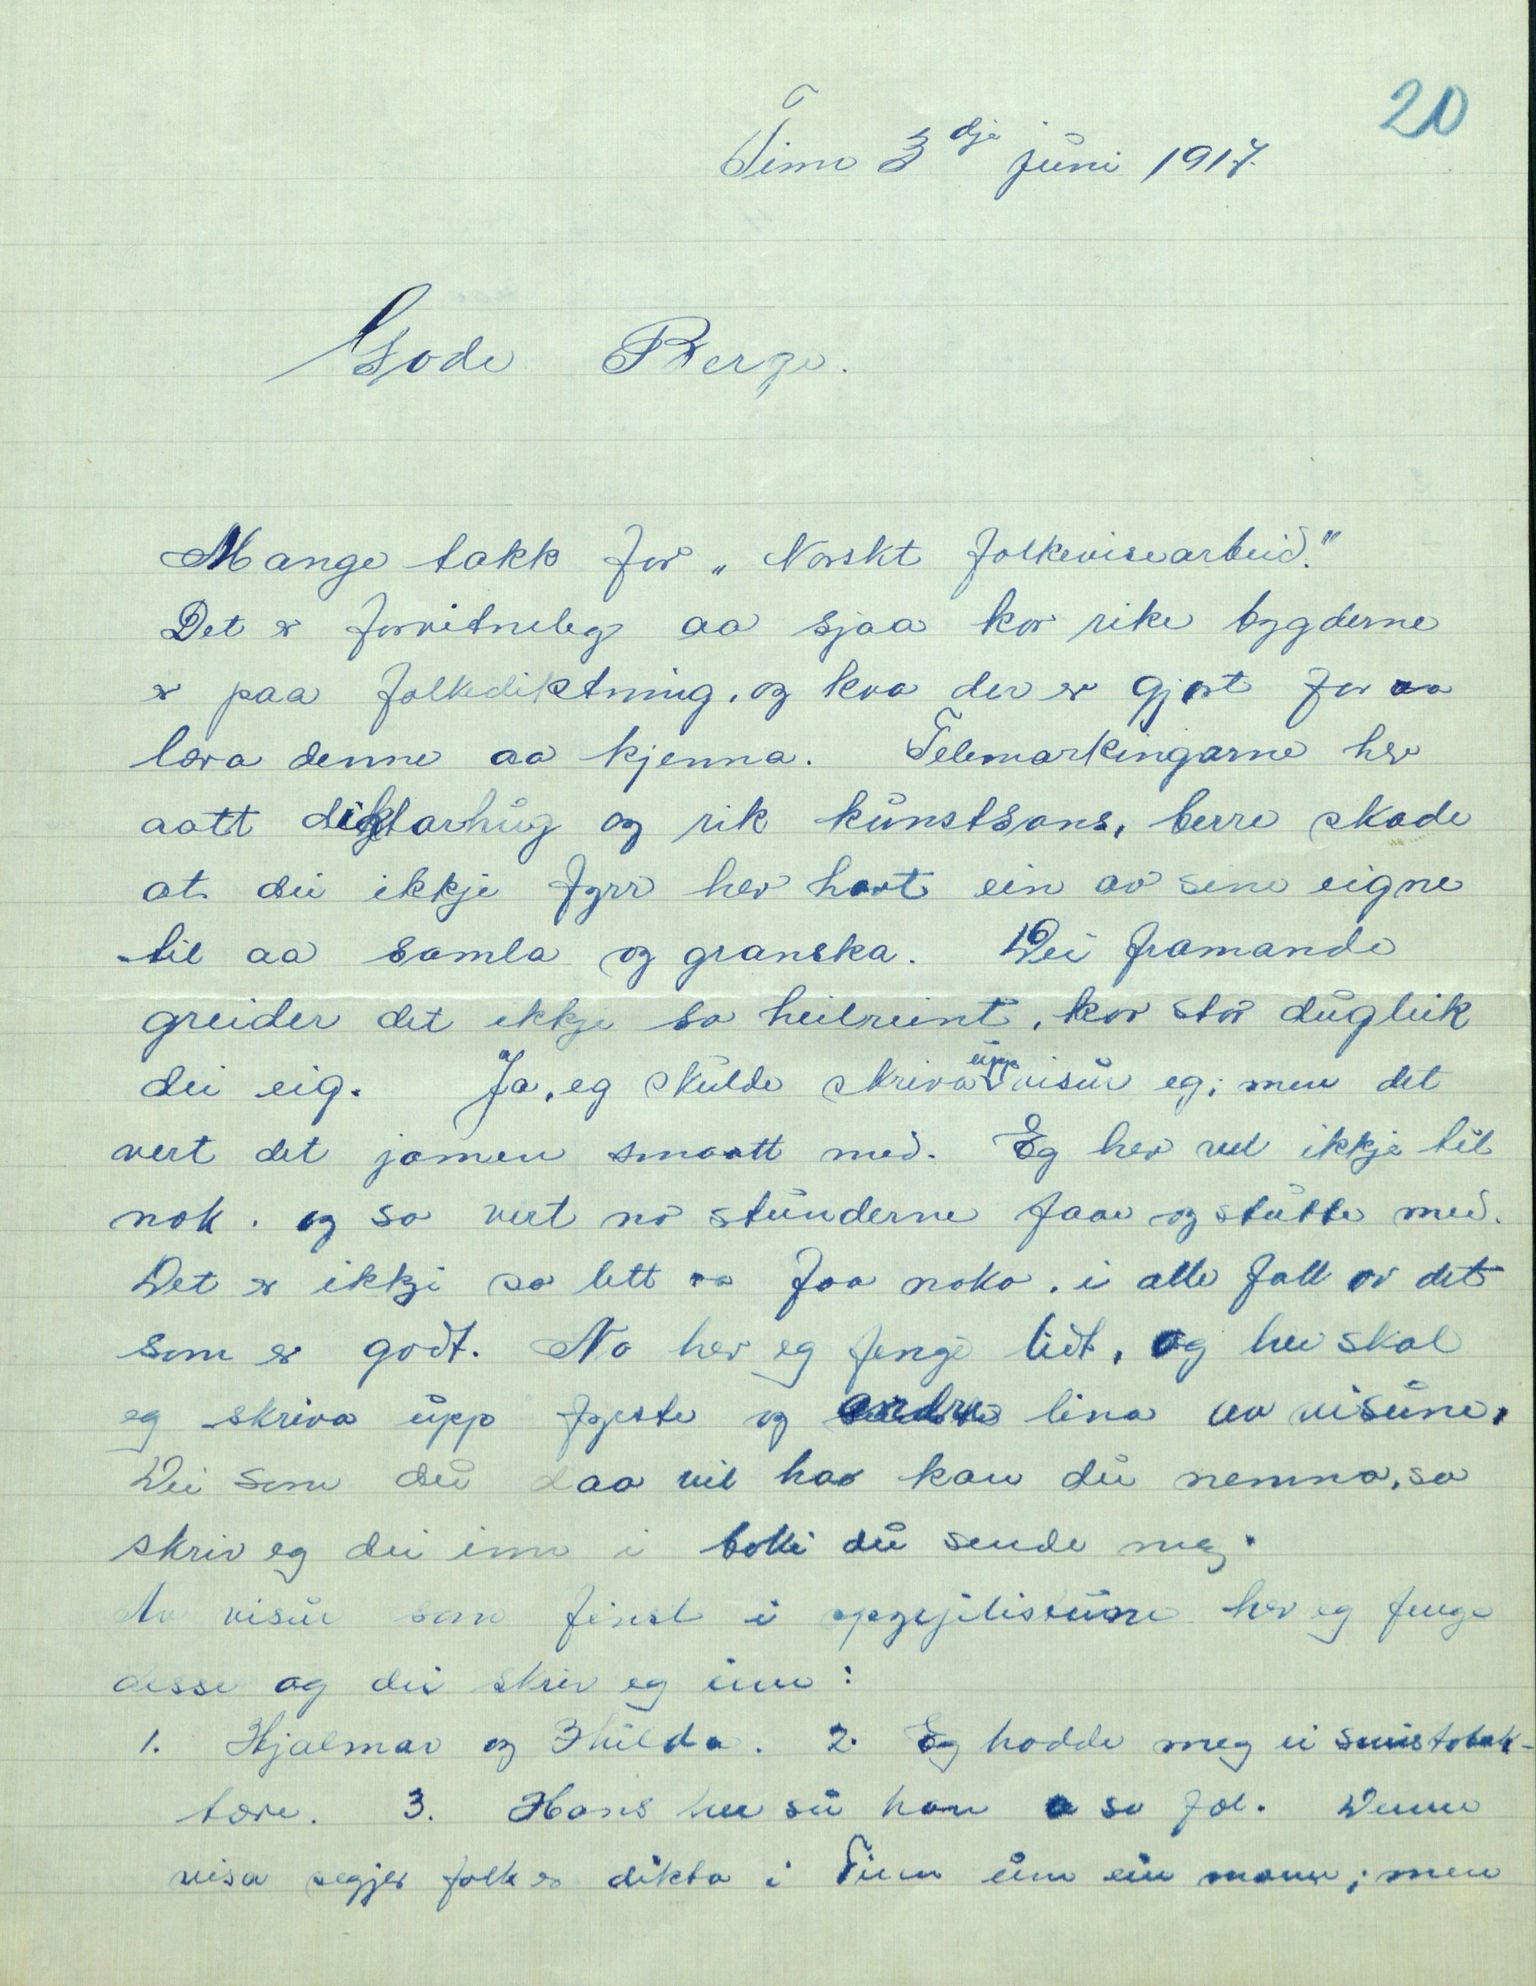 20
Tinn 3dje juni 1917.
Gode Berge.
Mange takk for „Norskt folkevisearbeid."
Det er forvitneleg aa sjaa kor rike bygderne
er paa folkediktning, og kva der er gjort for aa
læra denne aa kjenna. Telemarkingarne hev
aatt diktarhug og rik kunstsans, berre skade
at dei ikkje fyrr hev havt ein av sine eigne
til aa samla og granska. Dei framande
greider det ikkje so heilreint, kor stor dugleik
dei eig. Ja, eg skulde skriva upp visur eg; men det
vert det jamen smaatt med. Eg hev vel ikkje til
nok, og so vert no stunderne faae og stutte med.
Det er ikkje so lett aa faa noko, i alle fall av det
som er godt. No hev eg fenge lidt, og her skal
eg skriva upp fyrste og andre lina av visune.
Dei som du daa vil hava kan du nemna, so
skriv eg dei inn i boki du sende meg.
Av visur som finst i uppgjilistune hev eg fenge
desse og dei skriv eg inn:
1. Hjalmar og Hulda. 2. Eg hadde meg ei snustobak-
tære. 3. Hans her su han so fæl. Denne
visa segjer folk er dikta i Tinn um ein mann; men